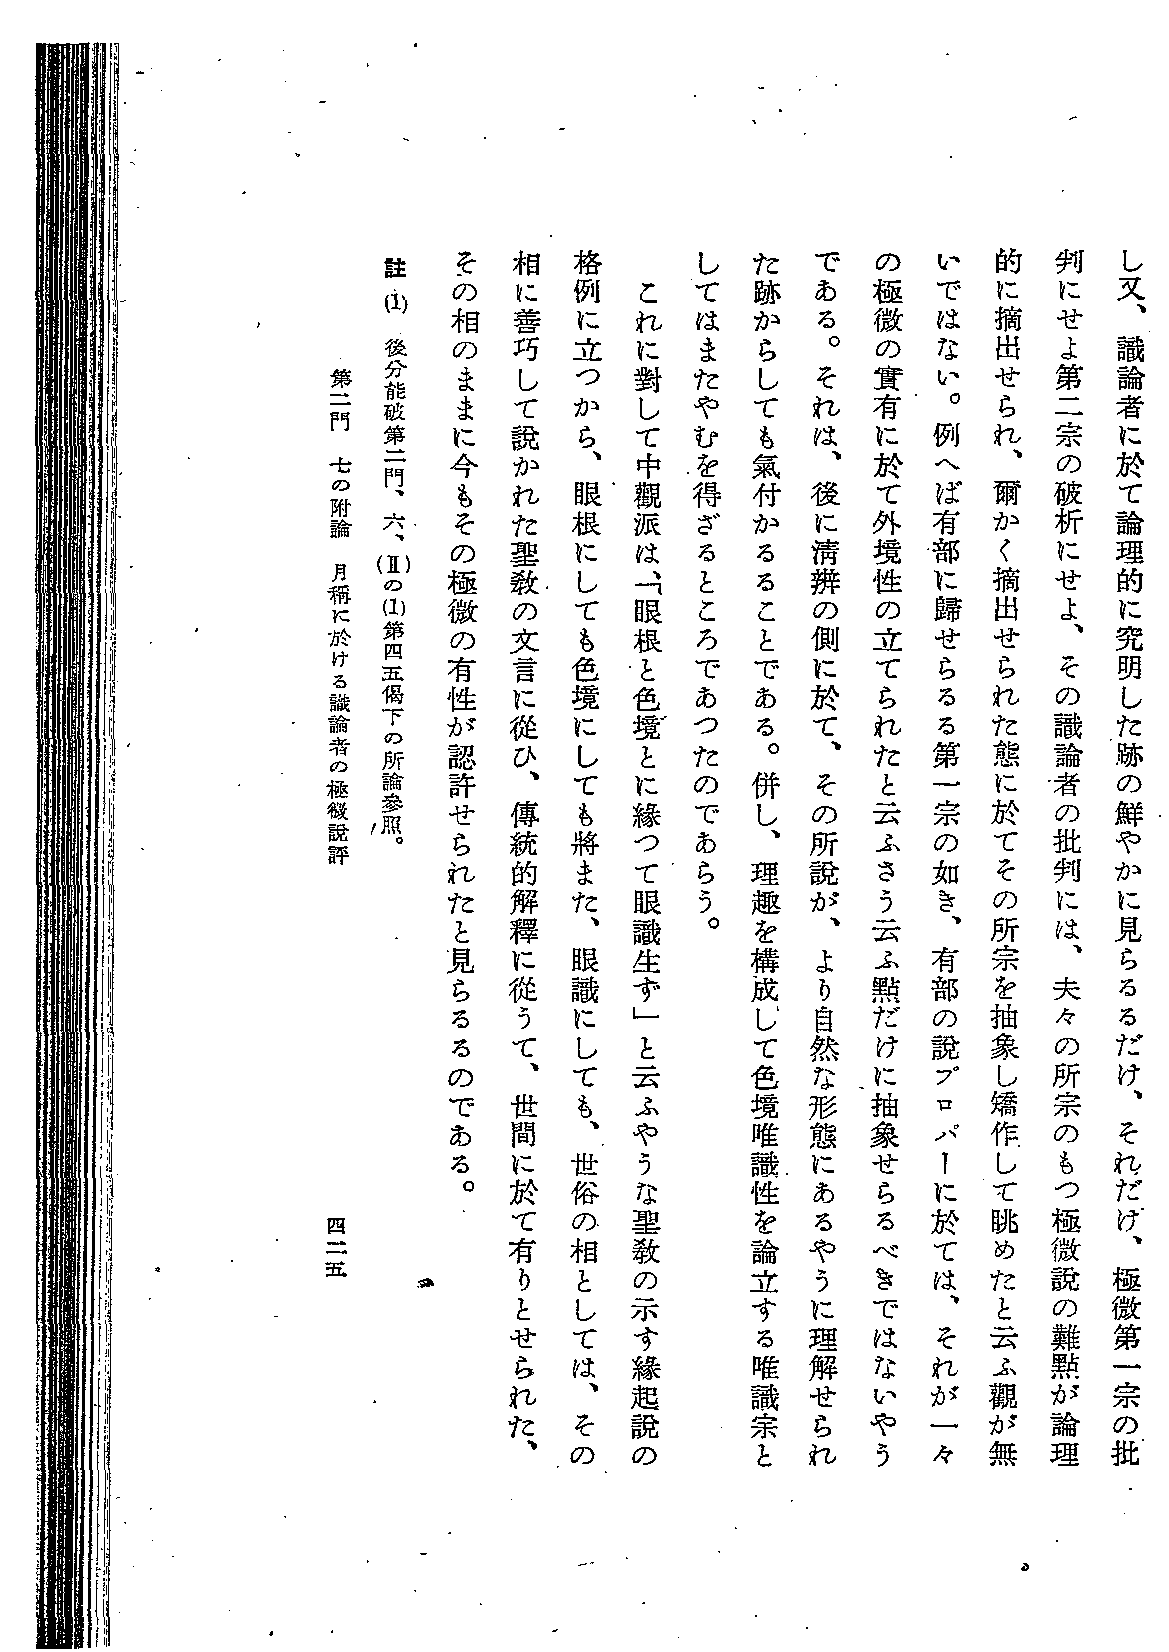 し又、識論者に於て論理的に究明した跡の鮮やかに見らるるだけ、それだけ、極微第一宗の批
判にせよ第二宗の破析にせよ、その識論者の批判には、夫々の所宗のもつ極微説の難點が論理
的に摘出せられ、爾かく摘出せられた態に於てその所宗を抽象し矯作して眺めたと云ふ觀が無
いではない。例へば有部に歸せらるる第一宗の如き、有部の說プロパーに於ては、それが一々
の極微の實有に於て外境性の立てられたと云ふさう云ふ點だけに抽象せらるべきではないやう
である。それは、後に淸辨の側に於て、その所說が、より自然な形態にあるやうに理解せられ
た跡からしても氣付かるることである。併し、理趣を構成して色境唯識性を論立する唯識宗と
してはまたやむを得ざるところであつたのであらう。
これに對して中觀派は、「眼根と色境とに緣つて眼識生ず」と云ふやうな聖敎の示す緣起說の
格例に立つから、眼根にしても色境にしても將また、眼識にしても、世俗の相としては、その
相に善巧して說かれた聖敎の文言に從ひ、傳統的解釋に從うて、世間に於て有りとせられた、
その相のままに今もその極微の有性が認許せられたと見らるるのである。
註 (1) 後分能破第二門、六、(Ⅱ)の(1)第四五偈下の所論參照。
第二門 七の附論 月稱に於ける識論者の極微說評
四二五